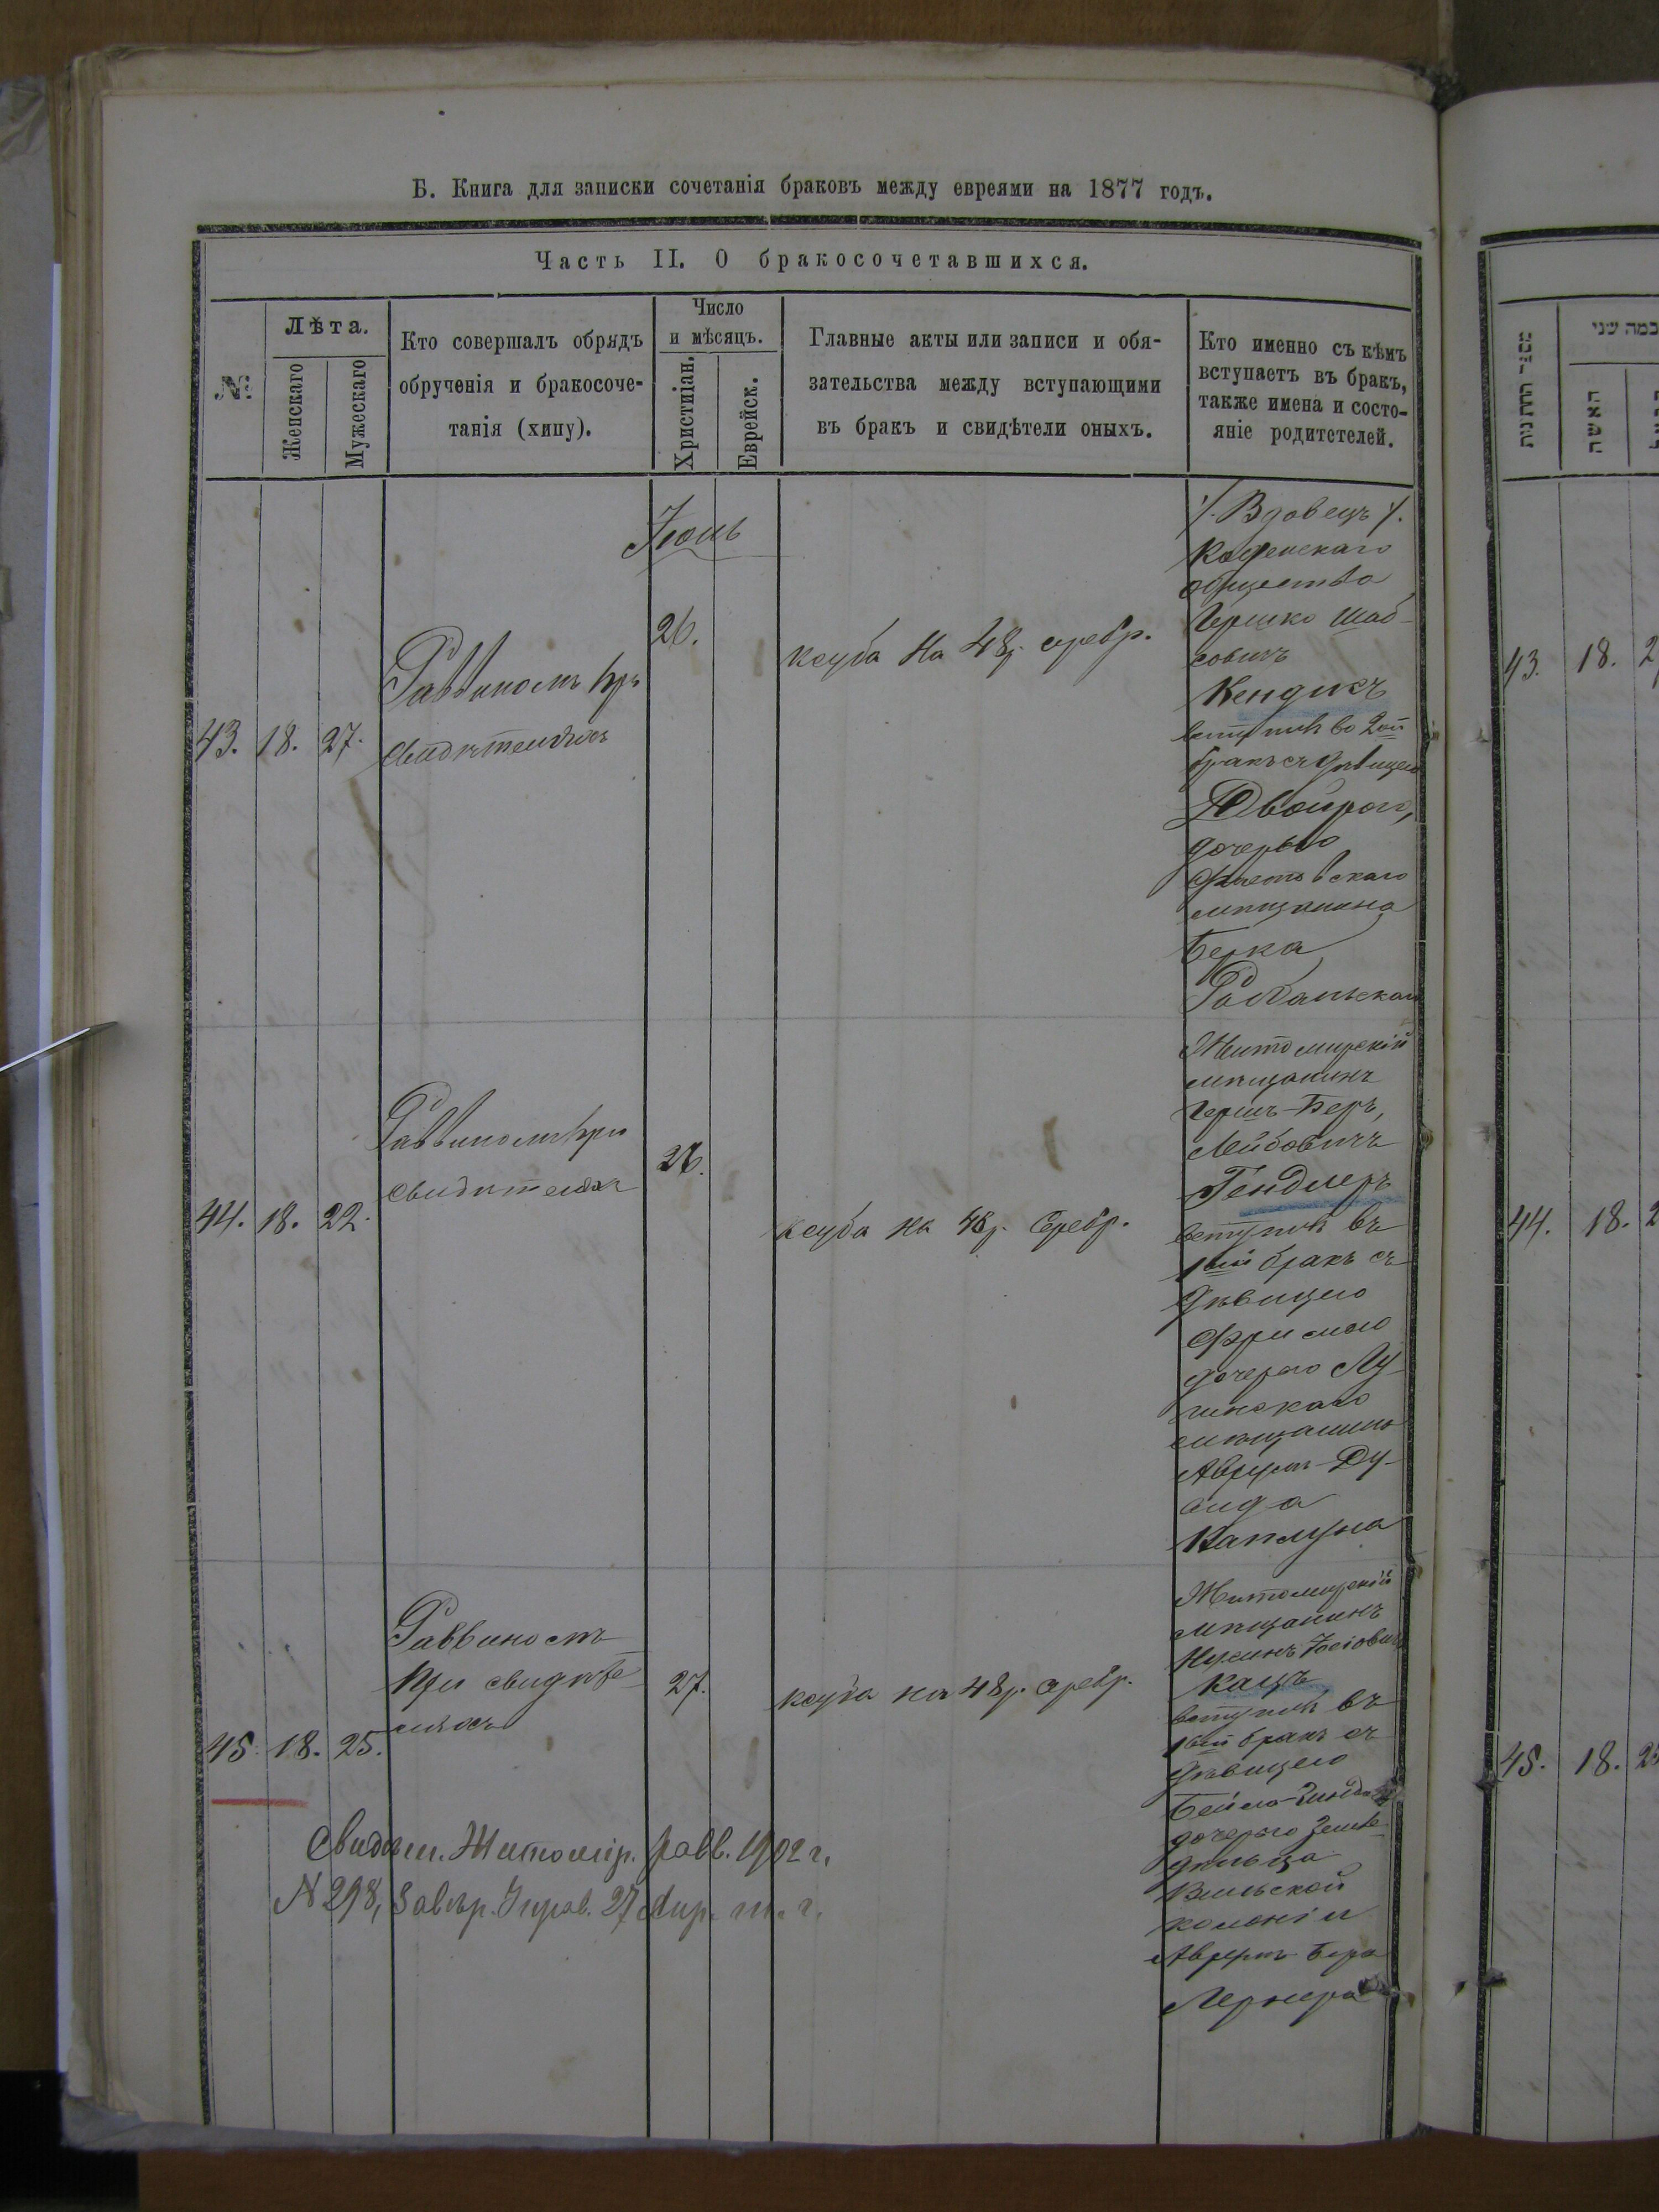 Б. Книга для записки сочетанія браковъ между евреями на 1877 годъ.
Часть II. О бракосочетавшихся.
№
Лѣта.
Женскаго
Мужескаго
Кто совершалъ обрядъ
обрученія и бракосоче-
танія (хипу).
Число
и мѣсяцъ.
Христіан.
Еврейск.
Главные акты или записи и обя-
зательства между вступающими
въ бракъ и свидѣтели оныхъ.
Кто именно съ кѣмъ
вступаетъ въ бракъ,
также имена и состо-
яніе родитетелей.
43. 18. 27.
Раввиномъ при
свидѣтеляхъ
26.
Ксуба на 48 р. серебр.
/. Вдовецъ /.
общества
Гершко Шаб-
совичъ
Кендисъ
вступилъ во 2ой
бракъ съ дѣвицею
Двойрою,
дочерью
мѣщанина
Берка
44. 18. 22.
Раввиномъ при
свидѣтеляхъ
26.
Ксуба на 48 р. серебр.
Житомирскій
мѣщанинъ
Гершъ-Беръ,
Лейбовичъ
Гендлеръ
вступилъ въ
1ый бракъ съ
дѣвицею
Фримою
дочерью Лу-
гинскаго
мѣщанина
Аврумъ-Ду-
вида
Каплуна
45. 18. 25.
Раввиномъ
при свидѣте-
ляхъ
27.
Ксуба на 48 р. серебр.
Житомирскій
мѣщанинъ
Нусинъ Іосіовичъ
Кацъ
вступилъ въ
1ый бракъ съ
дѣвицею
дочерью Земле-
дѣльца
Вильской
колоніи
Аврумъ Бера
Лернера
Свидѣт. Житомір. равв. 1902 г.
N 298, Завѣр. Управ. 27 Апр. т. г.
מספר החתנות
כמה שני
האשה
43. 18. 2
44. 18. 2
45. 18. 25